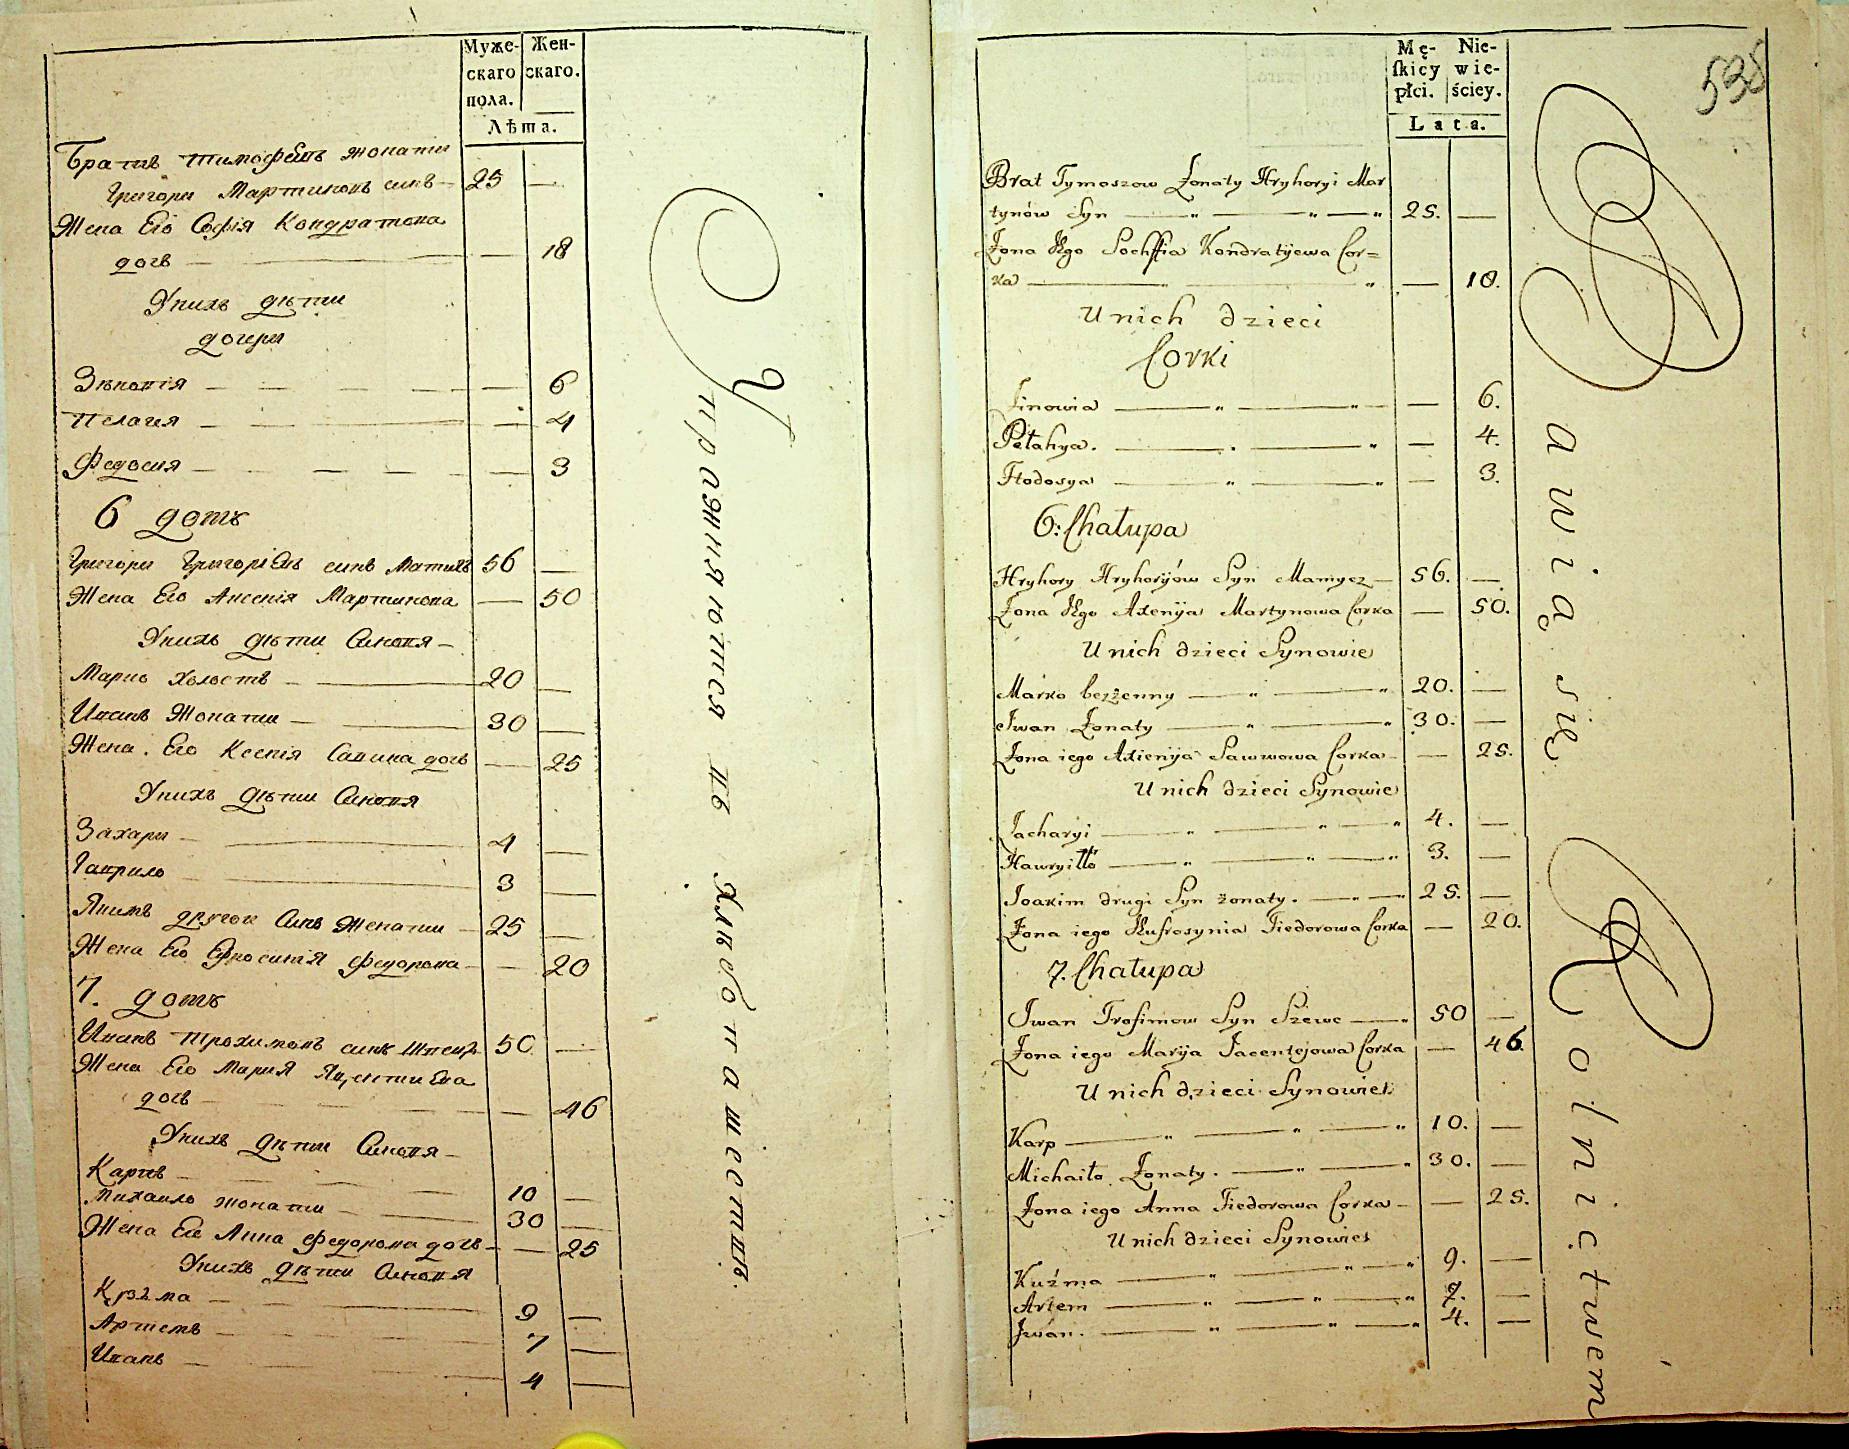 Муже-
скаго
пола.
Жен-
скаго.
Лѣта.
Братъ Тимофеевъ жонати
Григори Мартиновъ синъ — 25 —
Жена Его Софія Кондратова
дочь — — 18
Унихъ дѣти
дочери
Зѣновія — — 6
Пелагея — — 4
Федосия — — 3
6 домъ
Григори Григоріевъ синъ 56 —
Жена Его Аксенія Мартинова — 50
Унихъ дѣти Синовя —
Марко холостъ — 20 —
Иванъ Жонати — 30 —
Жена Его Ксенія Савина дочь — 25
Унихъ дѣти Синовя
Захари — 4 —
Гаврило — 3 —
Якимъ другои Синъ Женати — 25 —
Жена Его Ефросинія Федорова — — 20
7. домъ
Иванъ Трохимовъ синъ Швецъ 50 —
Жена Его Мария Яцентиева
дочь — — 46
Унихъ дѣти Синовя —
Карпъ — 10 —
Михаило жонати — 30 —
Жена Его Анна Федорова дочь — — 25
Унихъ дѣти Синовя
Кузма — 9 —
Артемъ — 7 —
Иванъ — 4 —
Упражняются въ Хлѣбопашествѣ.
535
Mę-
ſkicy
płci.
Nie-
wie-
ściey.
Lata.
Brat Tymoszow Żonaty Hryhoryi Mar
tynów Syn — " — " — " 25. —
Żona Jego Sochffia Kondratijewa Cor=
ka — " — " — 18.
U nich dzieci
Corki
Zinowia — " — " — 6.
Pełahya. — " — " — 4.
Ftodosya — " — " — 3.
6: Chałupa
Hryhory Hryhoryiów Syn — 56. —
Żona Jego Axenija Martynowa Corka — 50.
U nich dzieci Synowie
Marko bezżenny — " — " 20. —
Iwan Żonaty — " — " 30. —
Żona iego Axienija Sawwowa Corka — — 25.
U nich dzieci Synowie
Zacharyi — " — " — " 4. —
Hawryiłło — " — " — " 3. —
Ioakim drugi Syn żonaty. — " — " 25. —
Żona iego Eufrosynia Fiedorowa Corka — 20.
7. Chałupa
Iwan Trofimow Syn Szewc — " 50 —
Żona iego Marija Jacentejowa Corka — 46.
U nich dzieci Synowie
Karp — " — " — " 10. —
Michaiło Żonaty. — " — " 30. —
Żona iego Anna Fiedorowa Corka — — 25.
U nich dzieci Synowie
Kuźma — " — " — " 9. —
Artem — " — " — " 7. —
Iwan. — " — " — " 4. —
Bawią się Rolnictwem